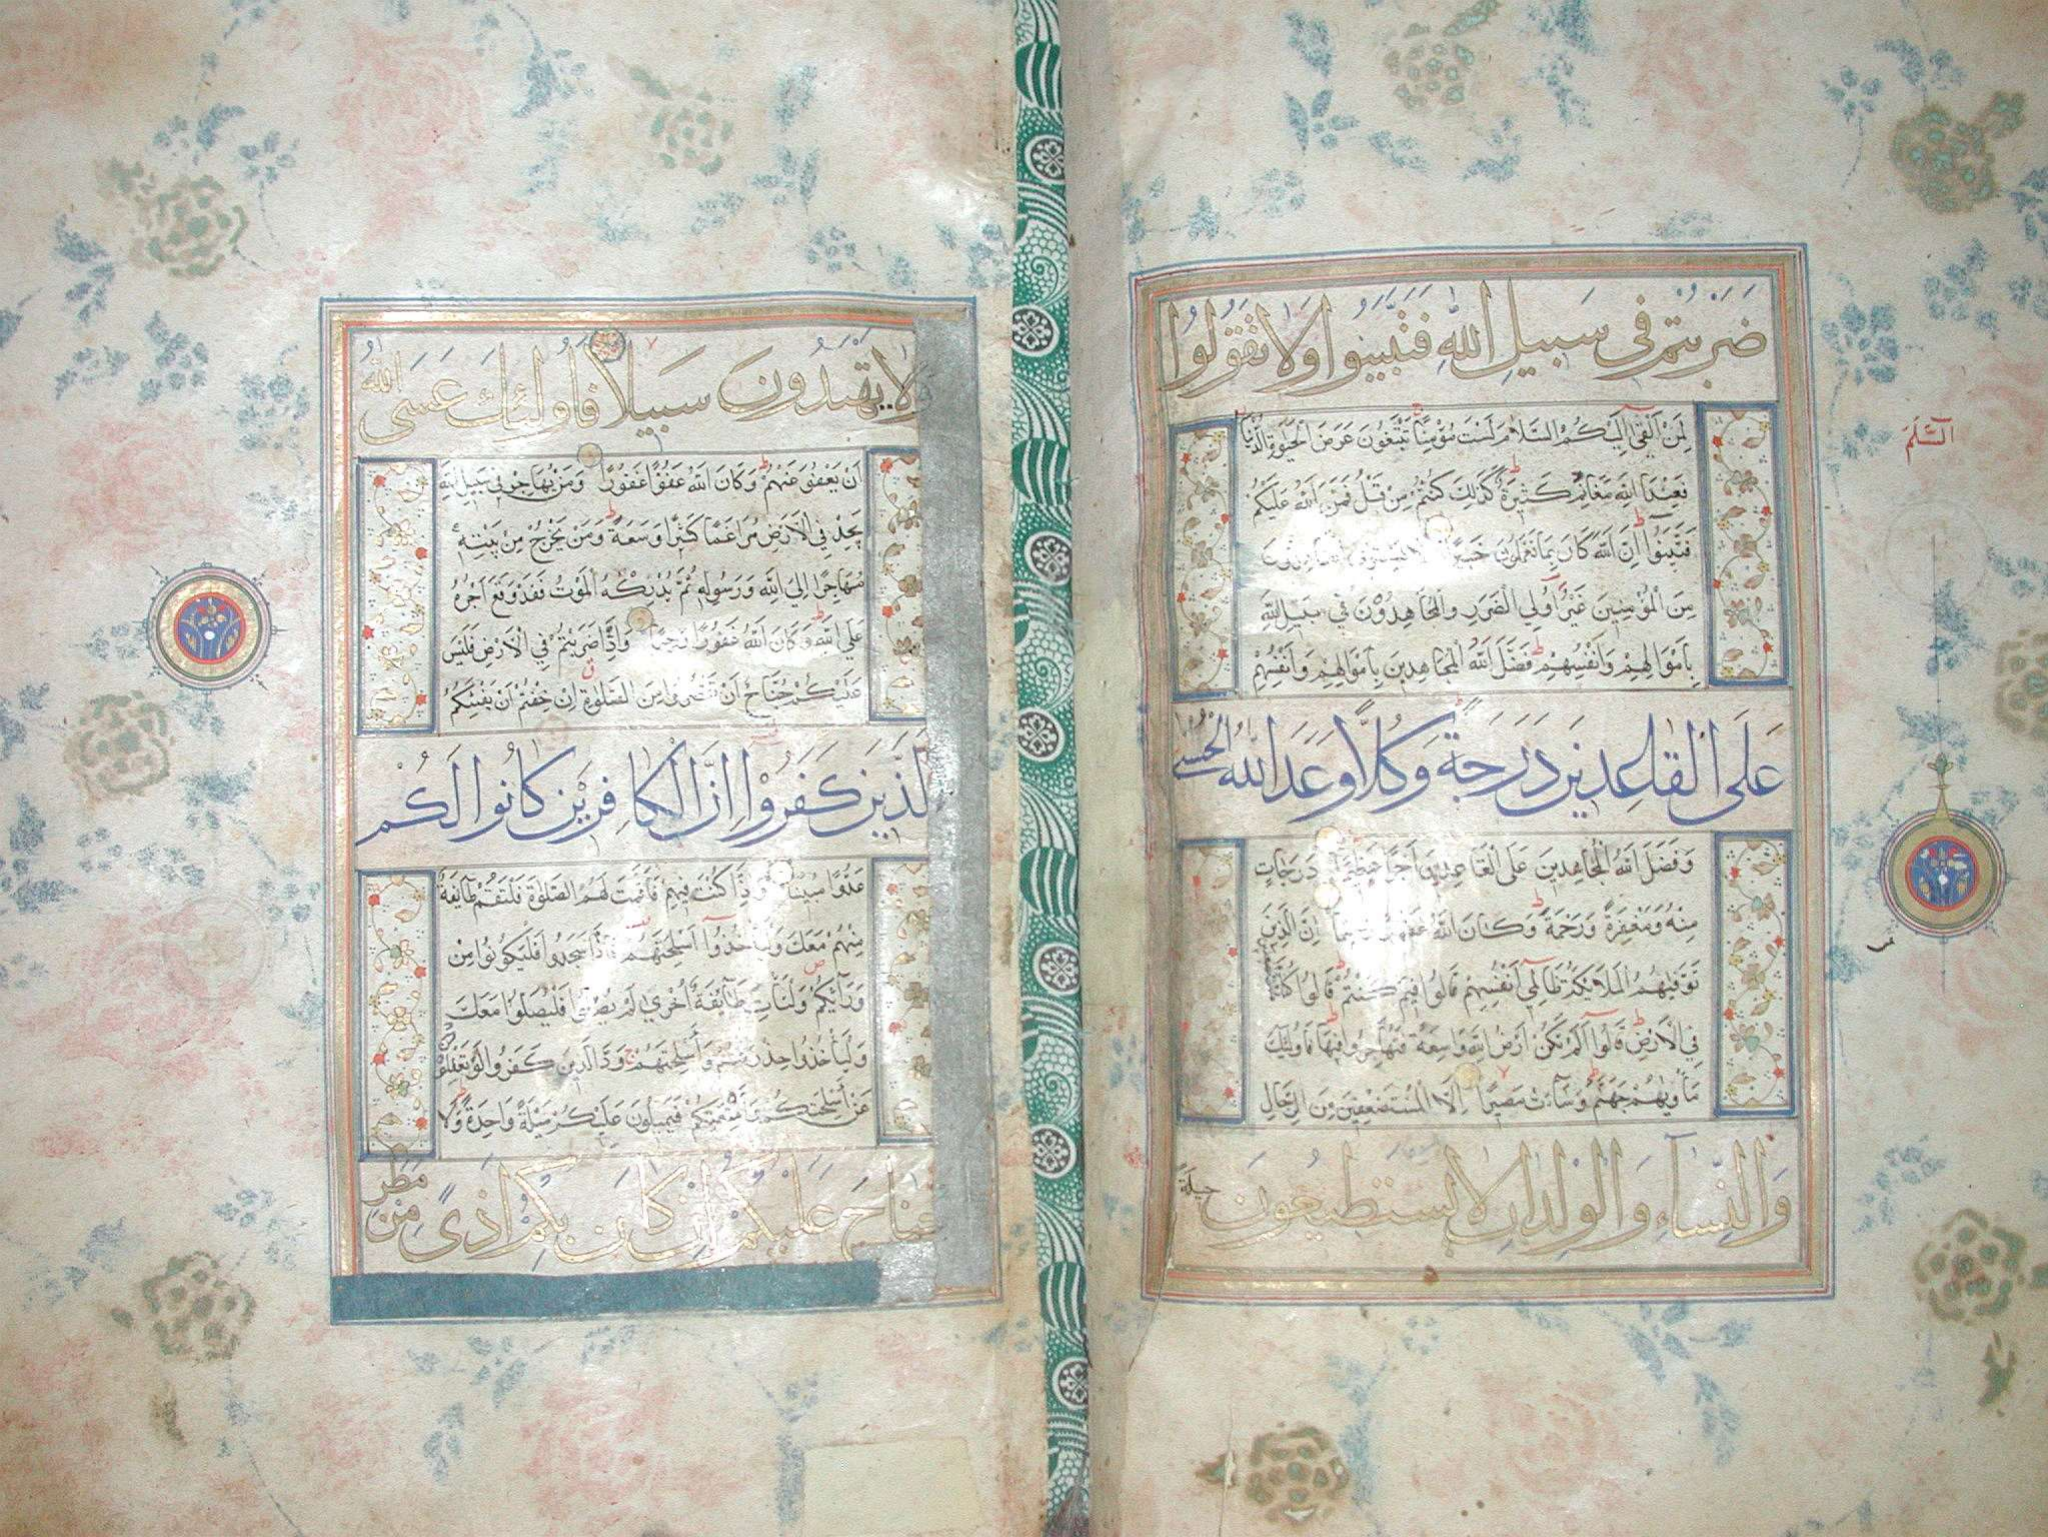 ضَرَبْتُمْ فِي سَبِيلِ اللَّهِ فَتَبَيَّنُوا وَلَا تَقُولُوا
لِمَنْ أَلْقَى إِلَيْكُمُ السَّلَامَ لَسْتَ مُؤْمِنًا تَبْتَغُونَ عَرَضَ الْحَيٰوةِ الدُّنْيَا
فَعِنْدَ اللَّهِ مَغَانِمُ كَثِيرَةٌ كَذَلِكَ كُنْتُمْ مِنْ قَبْلُ فَمَنَّ اللَّهُ عَلَيْكُمْ
فَتَبَيَّنُوا إِنَّ اللَّهَ كَانَ بِمَا تَعْمَلُونَ خَبِيرًا لَا يَسْتَوِي الْقَاعِدُونَ
مِنَ الْمُؤْمِنِينَ غَيْرُ أُولِي الضَّرَرِ وَالْمُجَاهِدُونَ فِي سَبِيلِ اللَّهِ
بِأَمْوَالِهِمْ وَأَنْفُسِهِمْ فَضَّلَ اللَّهُ الْمُجَاهِدِينَ بِأَمْوَالِهِمْ وَأَنْفُسِهِمْ
عَلَى الْقَاعِدِينَ دَرَجَةً وَكُلًّا وَعَدَ اللَّهُ الْحُسْنَى
وَفَضَّلَ اللَّهُ الْمُجَاهِدِينَ عَلَى الْقَاعِدِينَ أَجْرًا عَظِيمًا دَرَجَاتٍ
مِنْهُ وَمَغْفِرَةً وَرَحْمَةً وَكَانَ اللَّهُ غَفُورًا رَحِيمًا إِنَّ الَّذِينَ
تَوَفّٰيهُمُ الْمَلَائِكَةُ ظَالِمِي أَنْفُسِهِمْ قَالُوا فِيمَ كُنْتُمْ قَالُوا كُنَّا
فِي الْأَرْضِ قَالُوا أَلَمْ تَكُنْ أَرْضُ اللَّهِ وَاسِعَةً فَتُهَاجِرُوا فِيهَا فَأُولَئِكَ
مَأْوٰيهُمْ جَهَنَّمُ وَسَاءَتْ مَصِيرًا إِلَّا الْمُسْتَضْعَفِينَ مِنَ الرِّجَالِ
وَالنِّسَاءِ وَالْوِلْدَانِ لَا يَسْتَطِيعُونَ حِيلَةً
السَّلَمَ
وَلَا يَهْتَدُونَ سَبِيلًا فَأُولَئِكَ عَسَى اللَّهُ
أَنْ يَعْفُوَ عَنْهُمْ وَكَانَ اللَّهُ عَفُوًّا غَفُورًا وَمَنْ يُهَاجِرْ فِي سَبِيلِ اللَّهِ
يَجِدْ فِي الْأَرْضِ مُرَاغَمًا كَثِيرًا وَسَعَةً وَمَنْ يَخْرُجْ مِنْ بَيْتِهِ
مُهَاجِرًا إِلَى اللَّهِ وَرَسُولِهِ ثُمَّ يُدْرِكْهُ الْمَوْتُ فَقَدْ وَقَعَ أَجْرُهُ
عَلَى اللَّهِ وَكَانَ اللَّهُ غَفُورًا رَحِيمًا وَإِذَا ضَرَبْتُمْ فِي الْأَرْضِ فَلَيْسَ
عَلَيْكُمْ جُنَاحٌ أَنْ تَقْصُرُوا مِنَ الصَّلٰوةِ إِنْ خِفْتُمْ أَنْ يَفْتِنَكُمُ
الَّذِينَ كَفَرُوا إِنَّ الْكَافِرِينَ كَانُوا لَكُمْ
عَدُوًّا مُبِينًا وَإِذَا كُنْتَ فِيهِمْ فَأَقَمْتَ لَهُمُ الصَّلٰوةَ فَلْتَقُمْ طَائِفَةٌ
مِنْهُمْ مَعَكَ وَلْيَأْخُذُوا أَسْلِحَتَهُمْ فَإِذَا سَجَدُوا فَلْيَكُونُوا مِنْ
وَرَائِكُمْ وَلْتَأْتِ طَائِفَةٌ أُخْرَى لَمْ يُصَلُّوا فَلْيُصَلُّوا مَعَكَ
وَلْيَأْخُذُوا حِذْرَهُمْ وَأَسْلِحَتَهُمْ وَدَّ الَّذِينَ كَفَرُوا لَوْ تَغْفُلُونَ
عَنْ أَسْلِحَتِكُمْ وَأَمْتِعَتِكُمْ فَيَمِيلُونَ عَلَيْكُمْ مَيْلَةً وَاحِدَةً وَلَا
جُنَاحَ عَلَيْكُمْ إِنْ كَانَ بِكُمْ أَذًى مِنْ مَطَرٍ